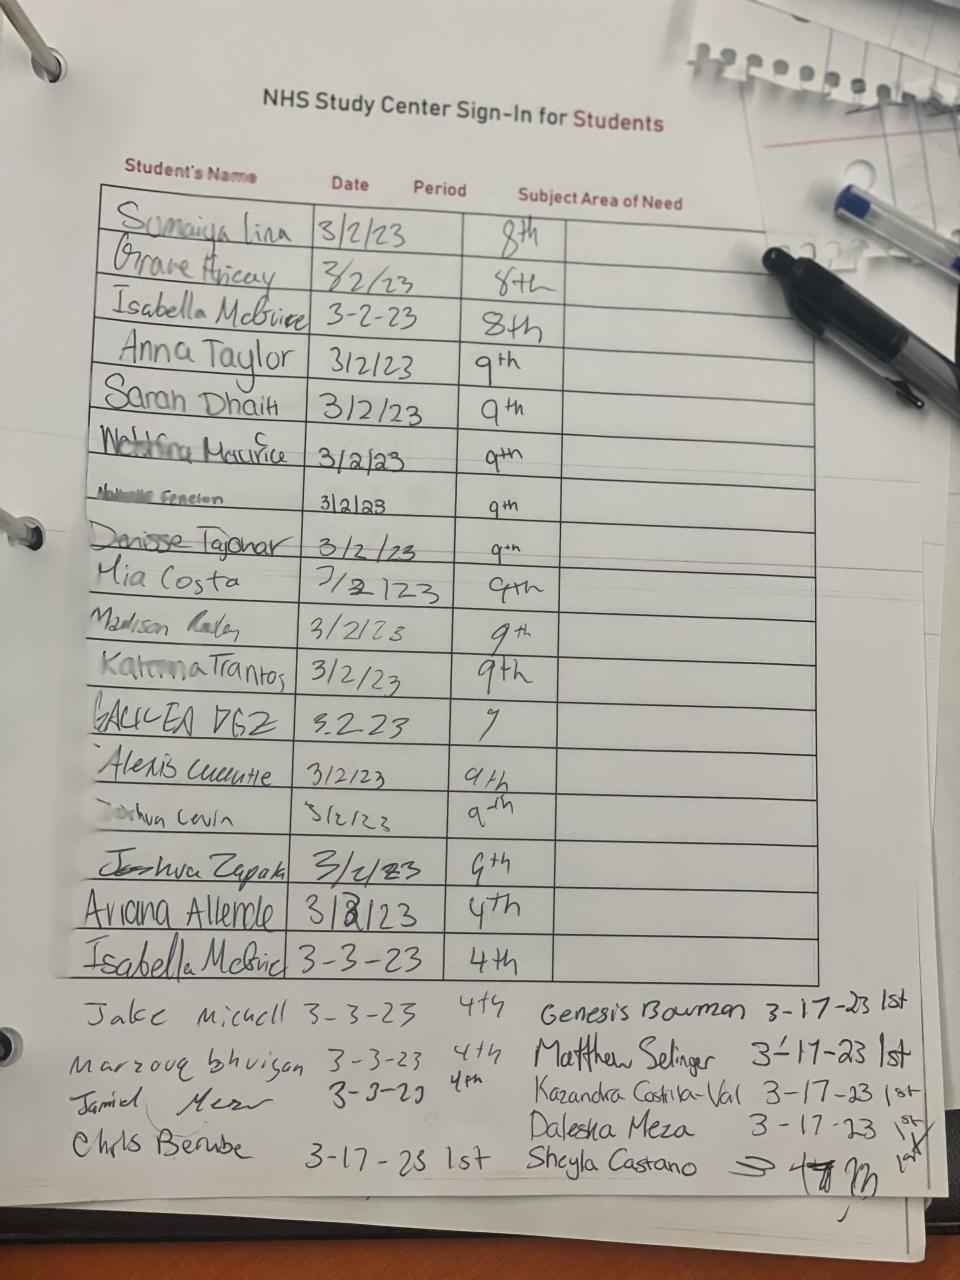 NHS Study Center Sign-In for Students
Student's Name Date Period Subject Area of Need
Sumaiya Lira 3/2/23 8th
3/2/23 8th
Isabella McGuire 3-2-23 8th
Anna Taylor 3/2/23 9th
Sarah Dhaiti 3/2/23 9th
Maurice 3/2/23 9th
3/2/23 9th
Denisse Tajonar 3/2/23 9th
Mia Costa 3/2/23 9th
Madison 3/2/23 9th
Katerina Trantos 3/2/23 9th
3.2.23 9
Alexis 3/2/23 9th
Joshua Levin 3/2/23 9th
Joshua 3/2/23 9th
Ariana Allende 3/3/23 4th
Isabella McGuire 3-3-23 4th
Jake Michell 3-3-23 4th
Marzouq bhuiyan 3-3-23 4th
3-3-23 4th
Chris Berube 3-17-23 1st
Genesis Bowman 3-17-23 1st
Matthew Selinger 3-17-23 1st
Kazandra Costilla-Val 3-17-23 1st
Daleska Meza 3-17-23 1st
Sheyla Castano 1st